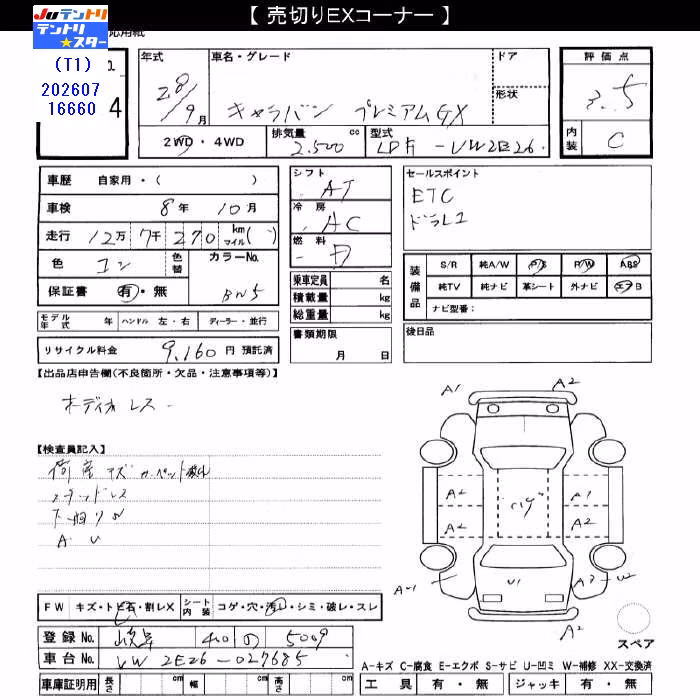 【 売切りEXコーナー 】
JUテントリ
テントリ★スター
(T1)
202607
16660
4
年式 28/9月
車名・グレード キャラバン プレミアムGX
ドア
形状
評価点 3.5
内装 C
2WD・4WD
排気量 2.500 cc
型式 LDF-VW2E26
車歴 自家用・( )
車検 8年10月
走行 12万7千270 km マイル( )
色
色替
カラーNo.
保証書 有・無
モデル年式 年 ハンドル 左・右 ディーラー・並行
リサイクル料金 9,160円 預託済
シフト AT
冷房 AC
燃料
乗車定員 名
積載量 kg
総重量 kg
書類期限
月 日
セールスポイント
ETC
装備品
S/R 純A/W P/S P/W ABS
純TV 純ナビ 革シート 外ナビ エアB
ナビ型番：
後日品
【出品店申告欄(不良箇所・欠品・注意事項等)】
【検査員記入】
A U
FW キズ・トビ石・割レX
シート内装 コゲ・穴・汚レ・シミ・破レ・スレ
登録No. 岐阜 400 の 5009
車台No. VW2E26-027685
車庫証明用 長さ cm 幅 cm 高さ cm
A1
A2
A2
A1
A2
A2
U1
A2
スペア
A-キズ C-腐食 E-エクボ S-サビ U-凹ミ W-補修 XX-交換済
工具 有・無 ジャッキ 有・無